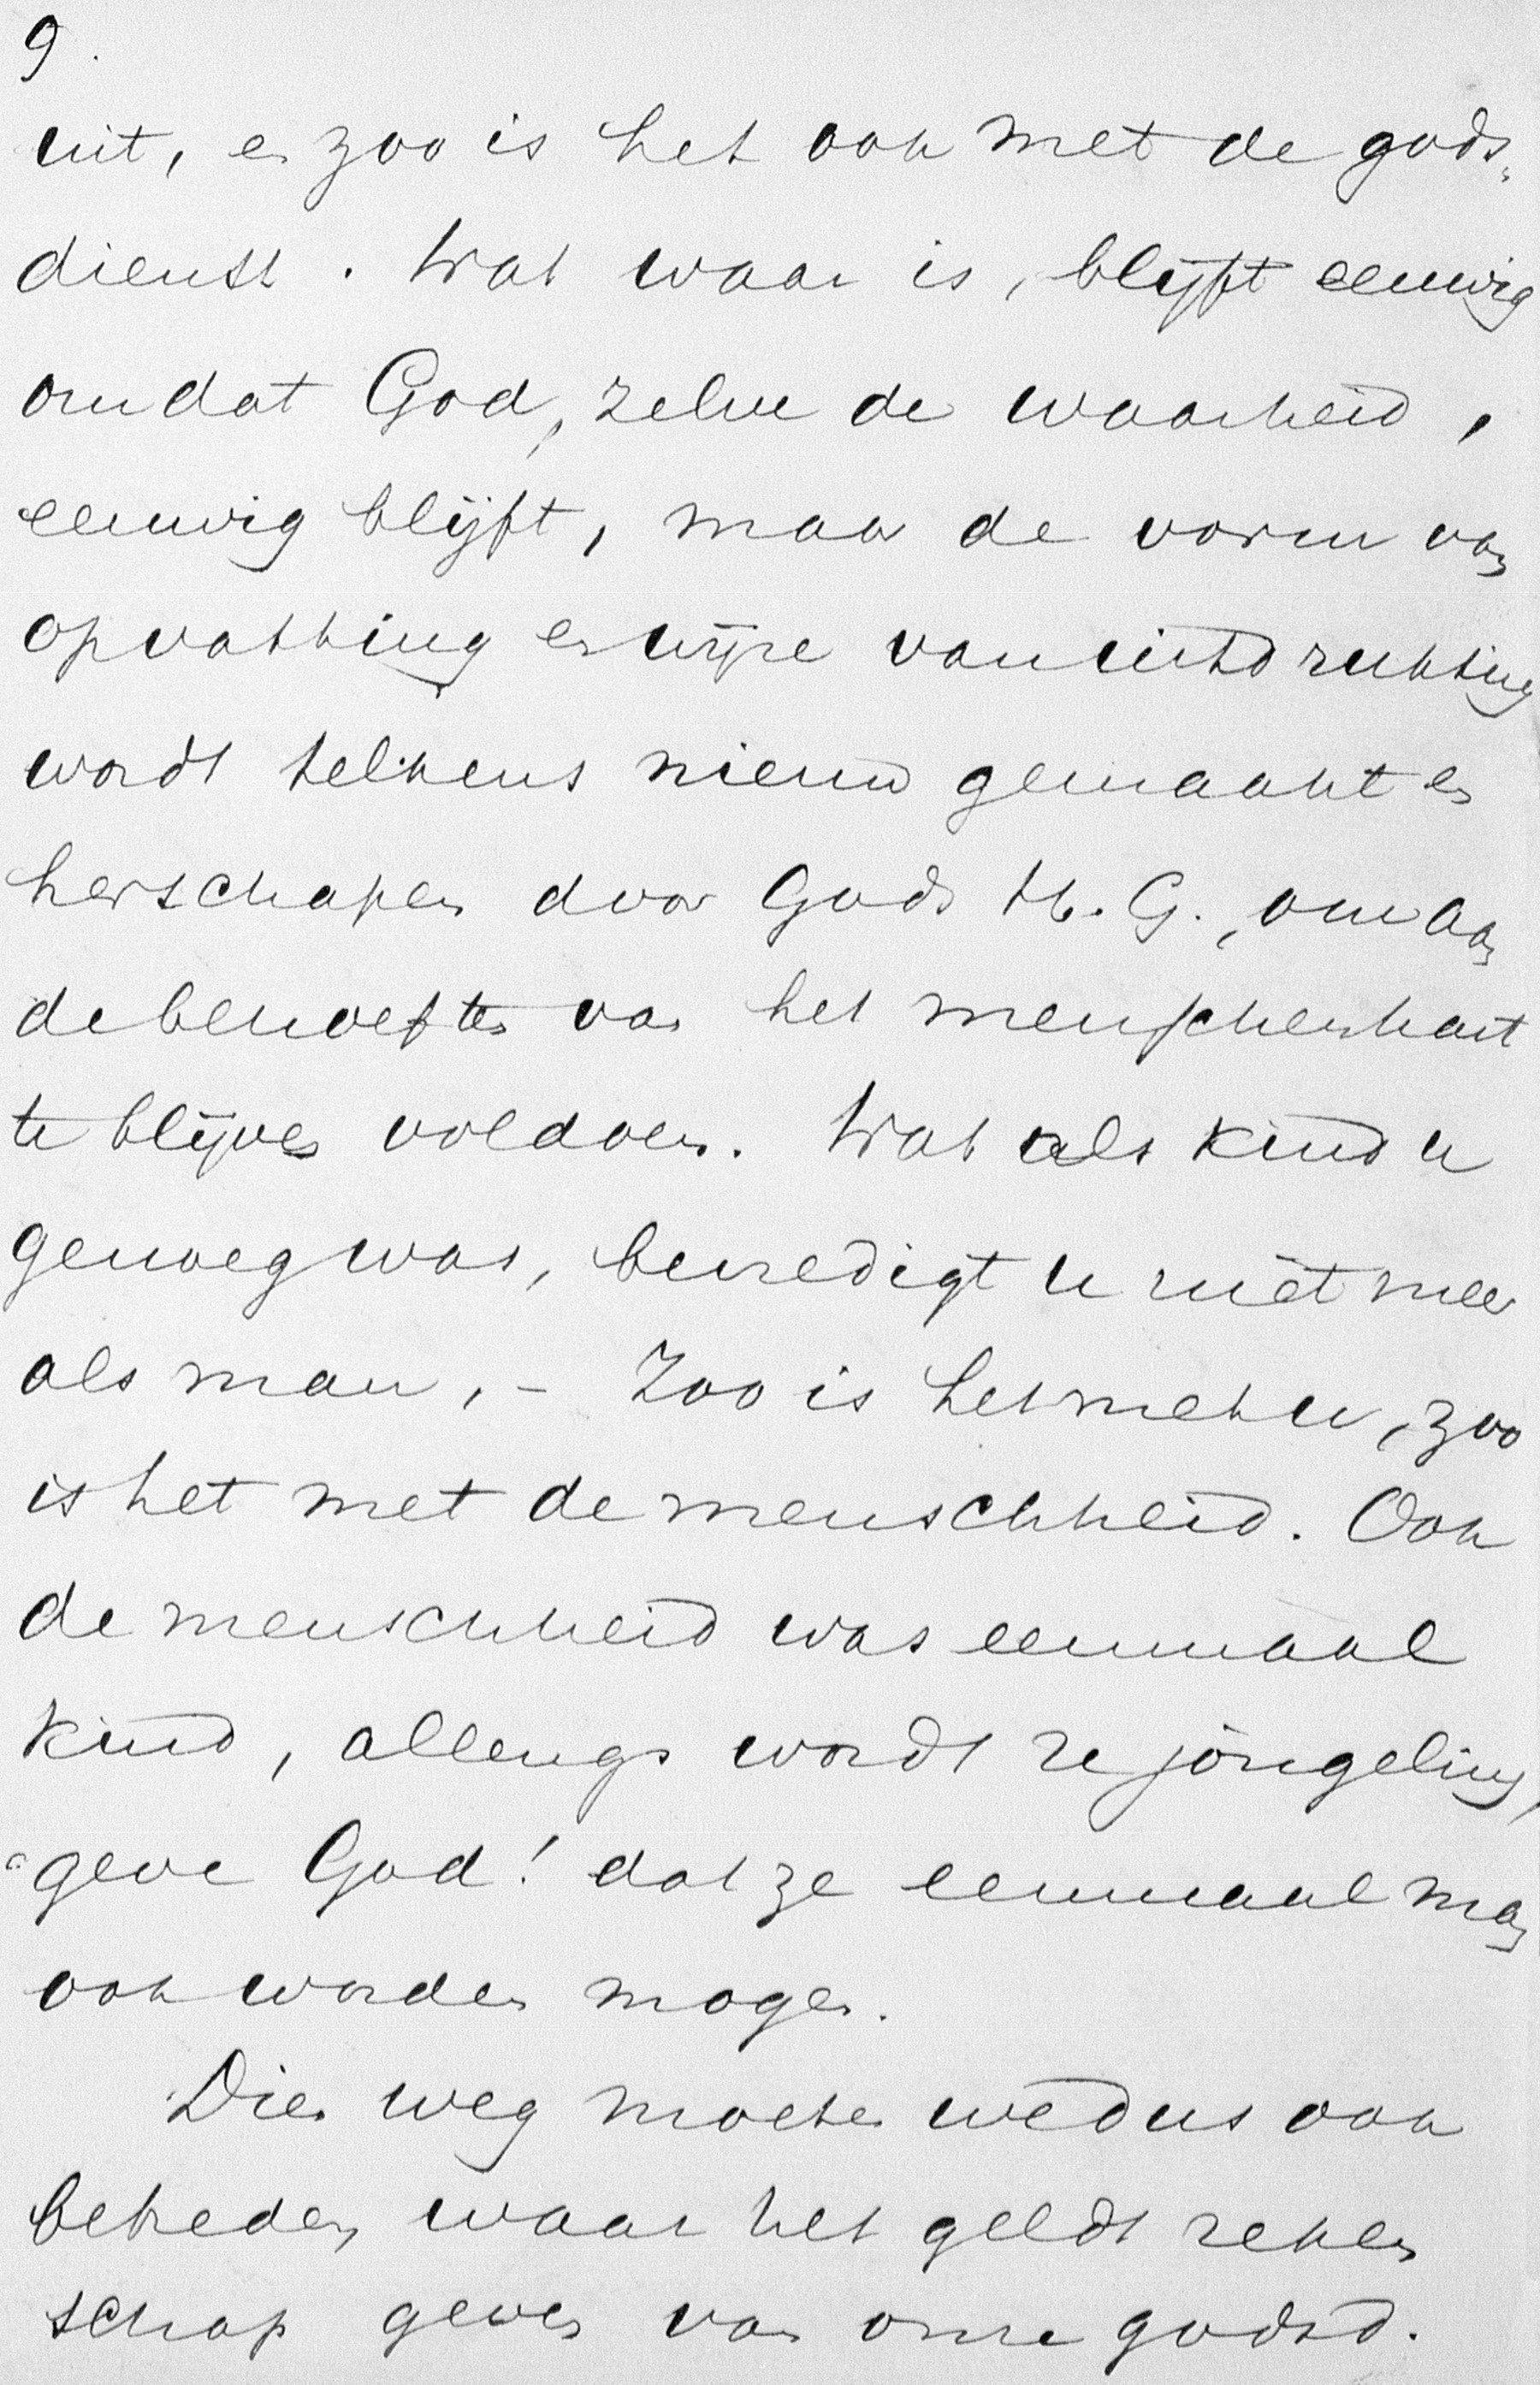 9.
uit, en zoo is het ook met de gods-
dienst. Wat waar is, blijft eeuwig
omdat God, zelve de waarheid,
eeuwig blijft, maar de vorm van
opvatting en wijze van uitdrukking
wordt telkens nieuw gemaakt en
herschapen door Gods H. G., om aan
de behoeften van het menschenhart
te blijven voldoen. Wat als kind u
genoeg was, bevredigt u niet meer
als man, - Zoo is het met u, zoo
is het met de menschheid. Ook
de menschheid was eenmaal
kind, allengs wordt ze jongeling,
geve God! dat ze eenmaal man
ook worden moge.
Dien weg moeten we dus ook
betreden waar het geldt reken
schap geven van onze godsd.